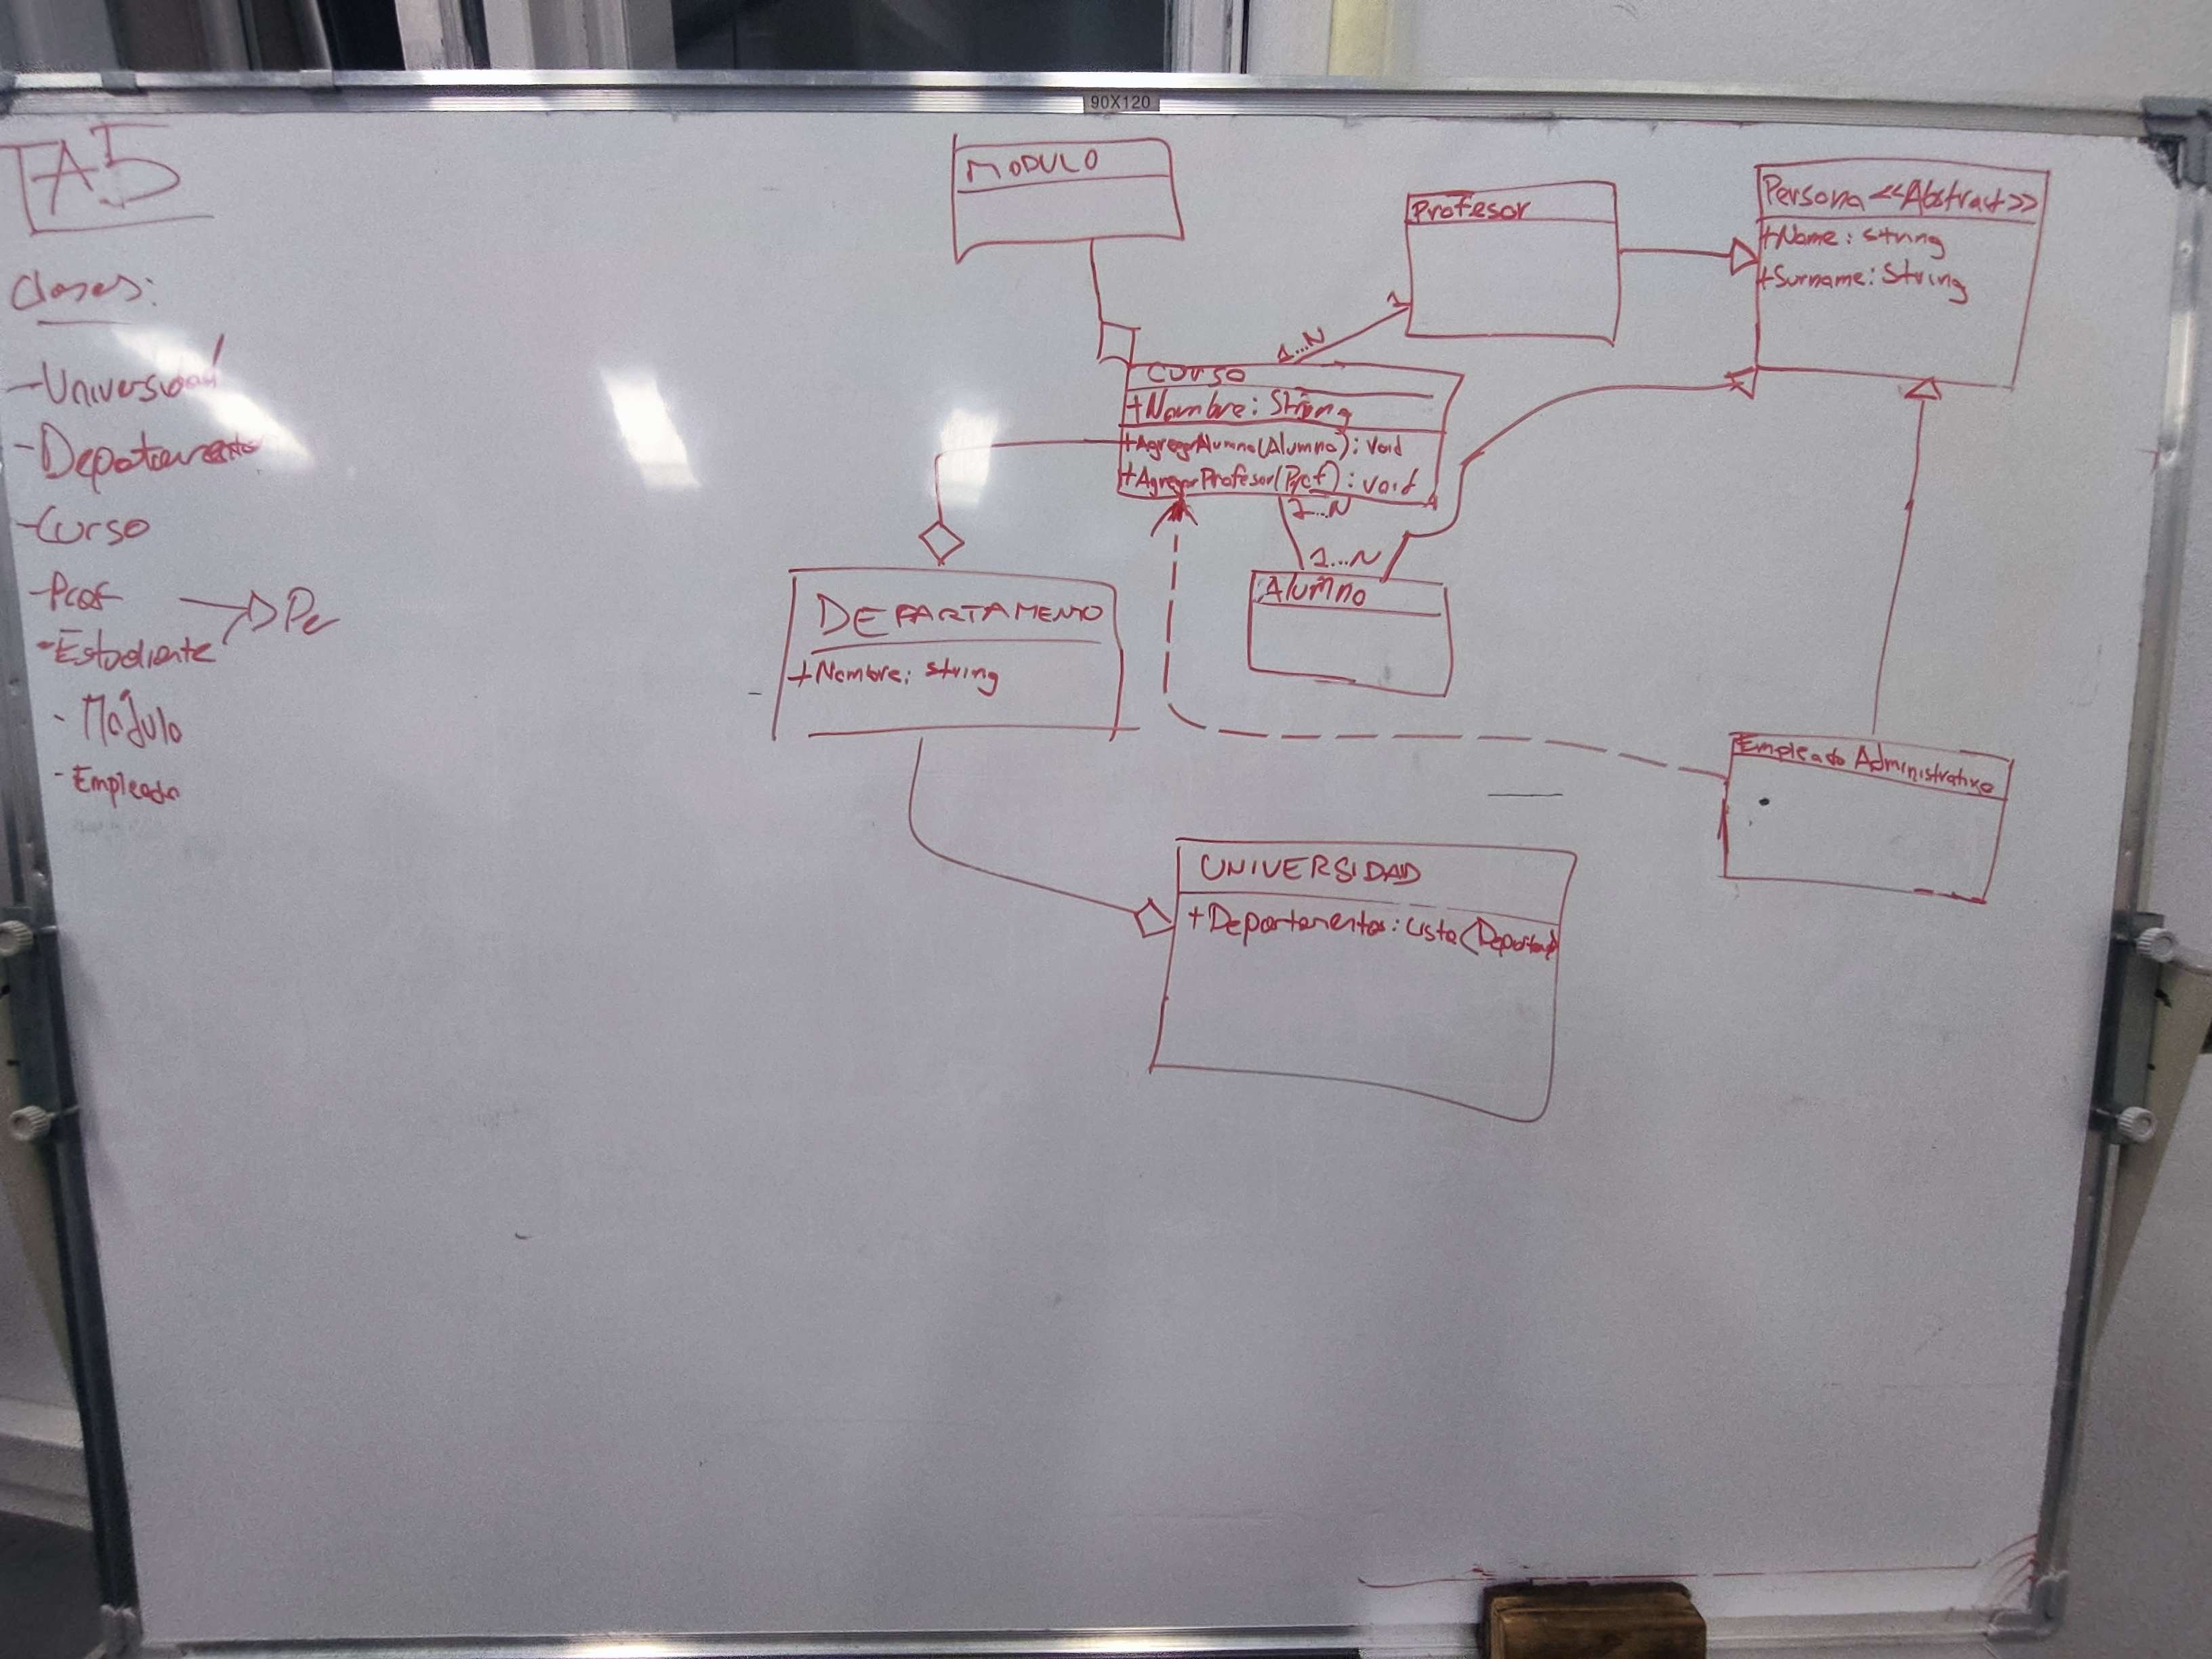 90X120
TA5
Clases:
-Universidad
-Departamento
-Curso
-Prof
-Estudiante
Pe
- Módulo
- Empleado
MODULO
Profesor
1
1...N
Persona <<Abstract>>
+Name: string
+Surname: String
Curso
+Nombre: String
+AgregarAlumno(Alumno): void
+AgregarProfesor(Prof): void
1...N
1...N
Alumno
DEPARTAMENTO
+Nombre: string
Empleado Administrativo
UNIVERSIDAD
+Departamentos: Lista(Departam)